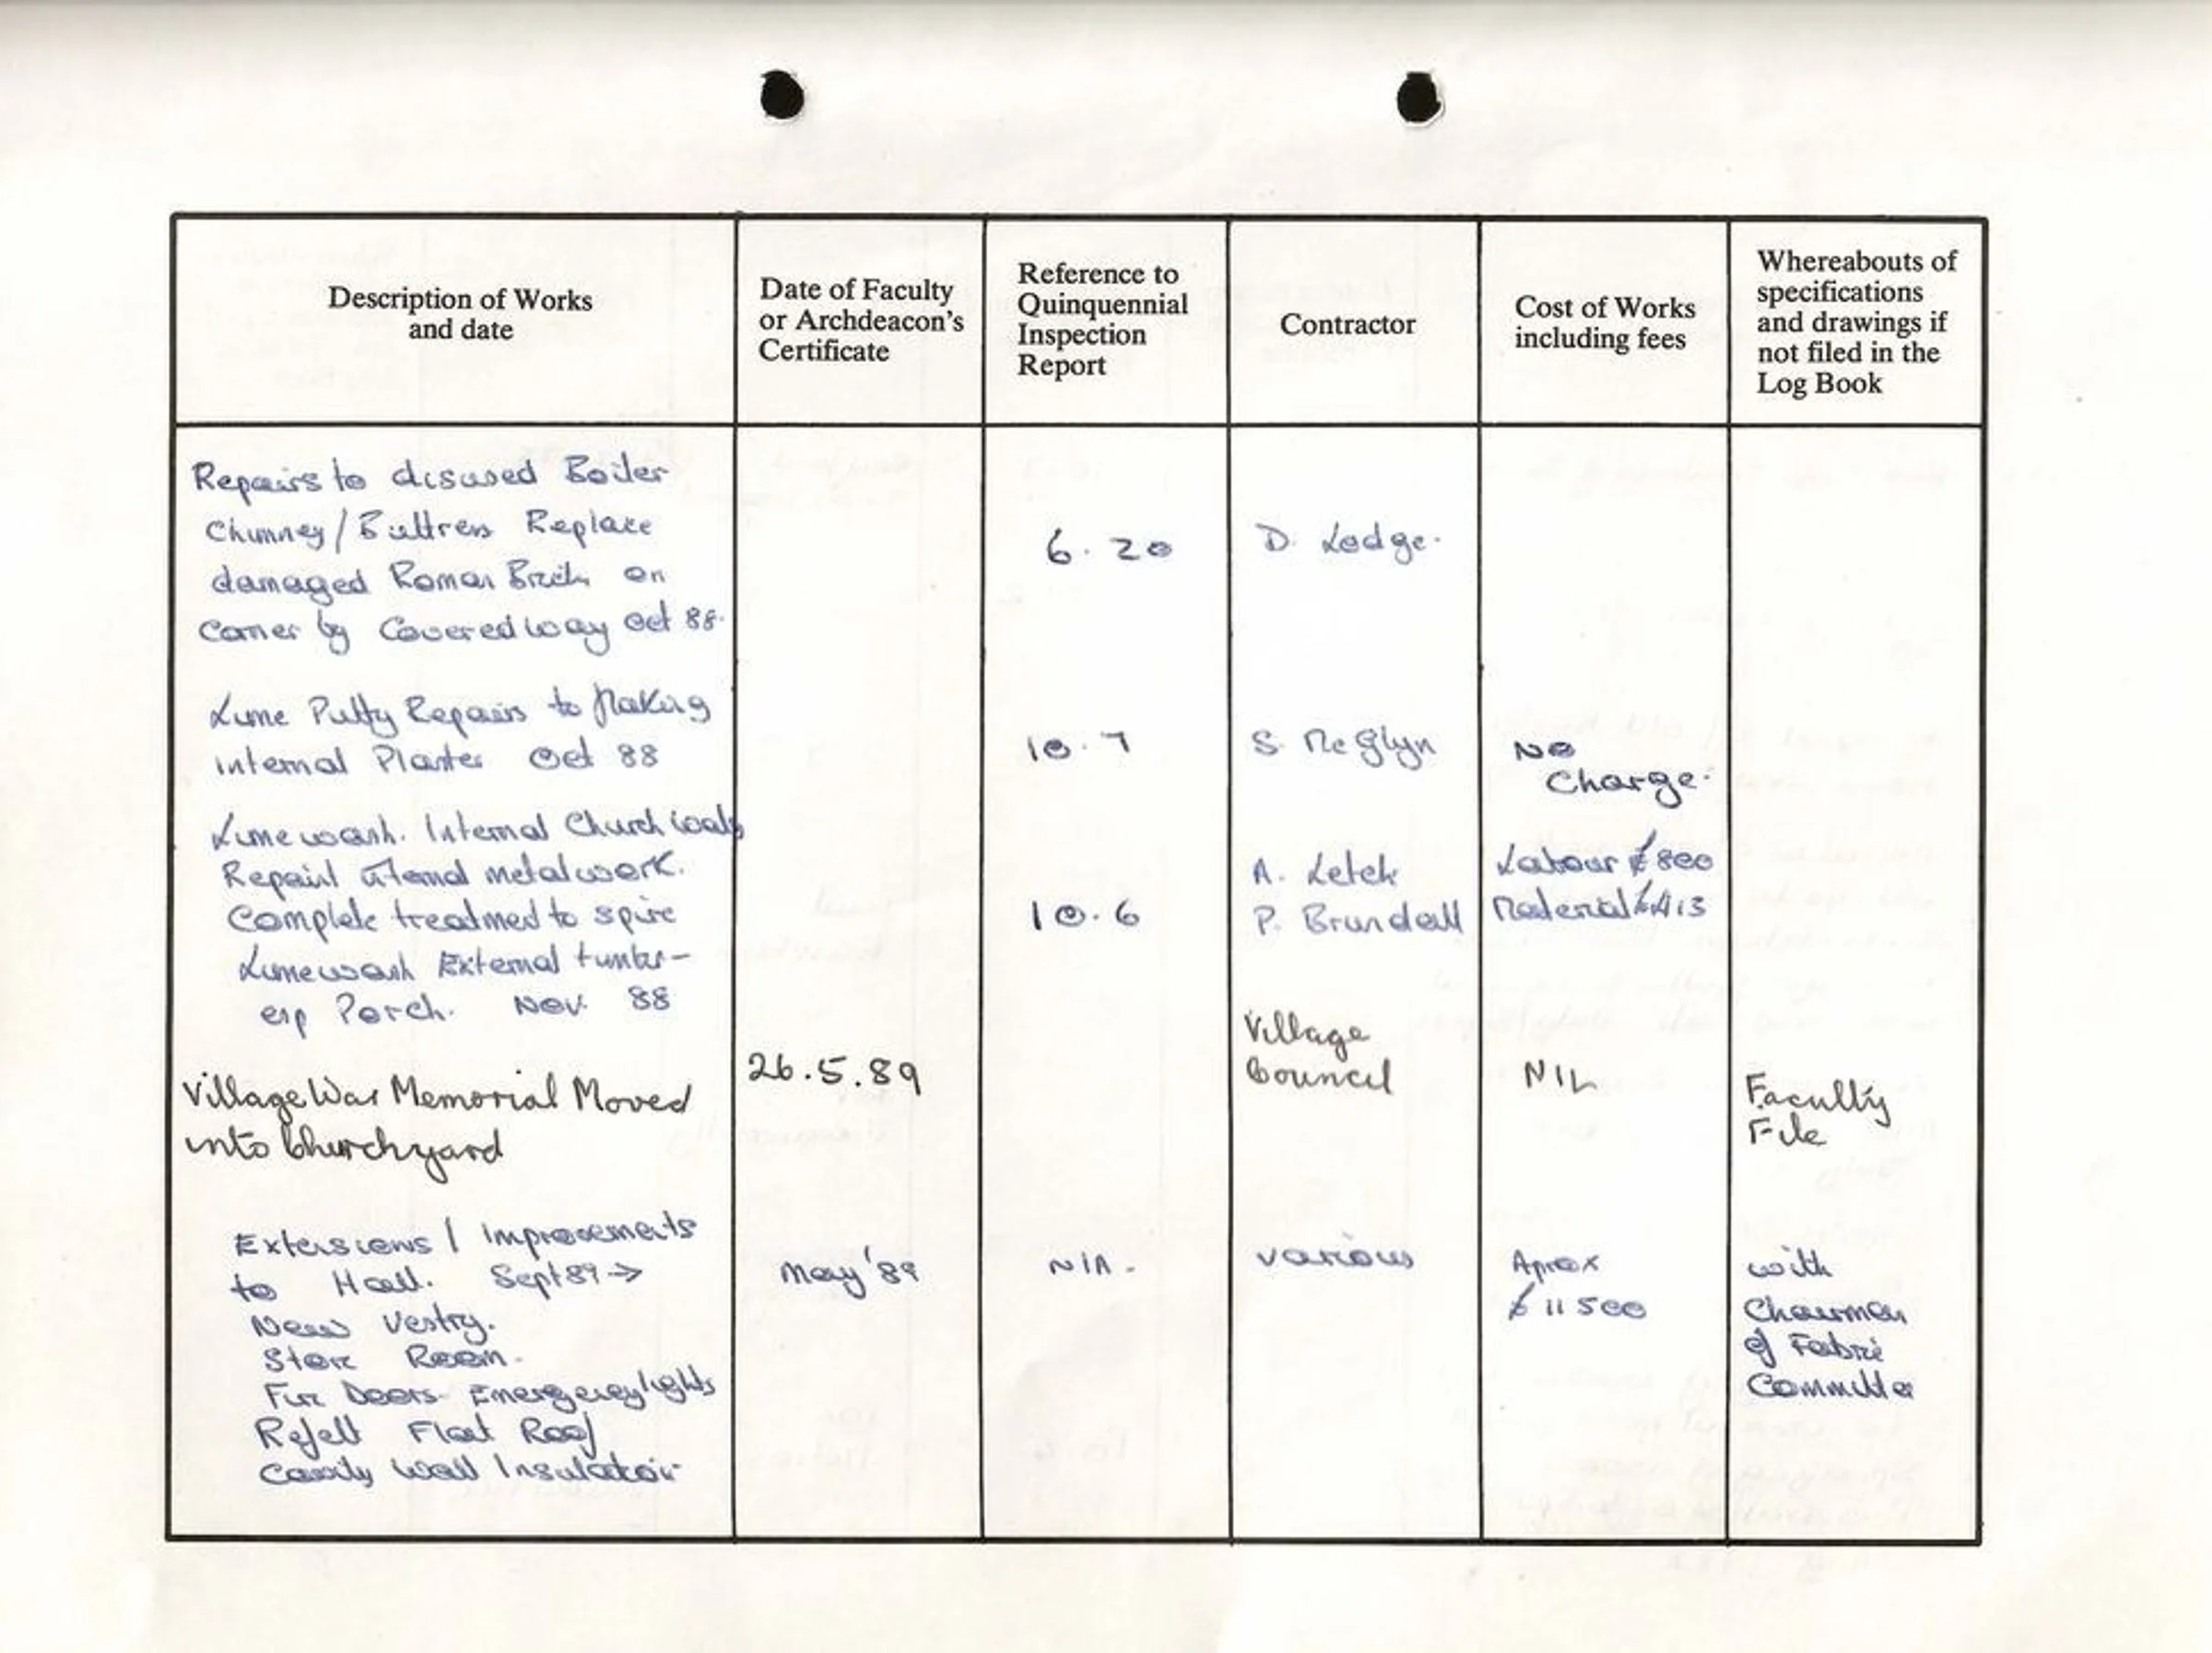 Description of Works
and date
Date of Faculty
or Archdeacon's
Certificate
Reference to
Quinquennial
Inspection
Report
Contractor
Cost of Works
including fees
Whereabouts of
specifications
and drawings if
not filed in the
Log Book
Repairs to disused Boiler
Chimney/Buttress Replace
damaged Roman Brick on
corner by Coveredway Oct 88.
6.20
D. Lodge.
Lime Putty Repairs to flaking
internal Plaster Oct 88
10.7
S. McGlyn
No
Charge.
Limewash. Internal Church walls
Repaint internal metalwork.
Complete treatment to spire
Limewash External timber-
Porch. Nov. 88
10.6
A. Letch
P. Brundell
Labour £800
Material £413
Village War Memorial Moved
into Churchyard
26.5.89
Village
Council
NIL
Faculty
File
Extensions / Improvements
to Hall. Sept 89 →
New Vestry.
Store Room.
Fire Doors. Emergency lights
Refelt Flat Roof
Cavity Wall Insulation
May '89
N/A.
various
Aprox
£11500
with
Chairman
of Fabric
Committee